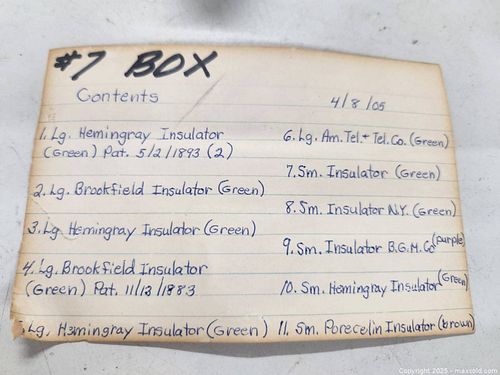 #7 BOX
Contents
4/8/05
1. Lg. Hemingray Insulator
(Green) Pat. 5/2/1893 (2)
2. Lg. Brookfield Insulator (Green)
3. Lg Hemingray Insulator (Green)
4. Lg. Brookfield Insulator
(Green) Pat. 11/13/1883
Lg. Hemingray Insulator (Green)
6. Lg. Am. Tel. + Tel. Co. (Green)
7. Sm. Insulator (Green)
8. Sm. Insulator N.Y. (Green)
9. Sm. Insulator B.G.M. Co (purple)
10. Sm. Hemingray Insulator (Green)
11. Sm. Porecelin Insulator (brown)
Copyright 2025 - maxsold.com